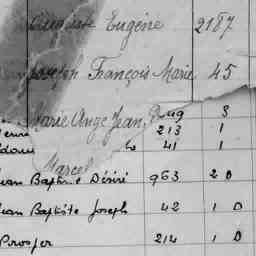 Eugène 2187
Joseph François Marie 45
Marie Ange Jean Aug 3
213 1
41 1
Marcel
Jean Baptiste Désiré 963 2 D
Jean Baptiste Joseph 42 1 D
Prosper 214 1 D